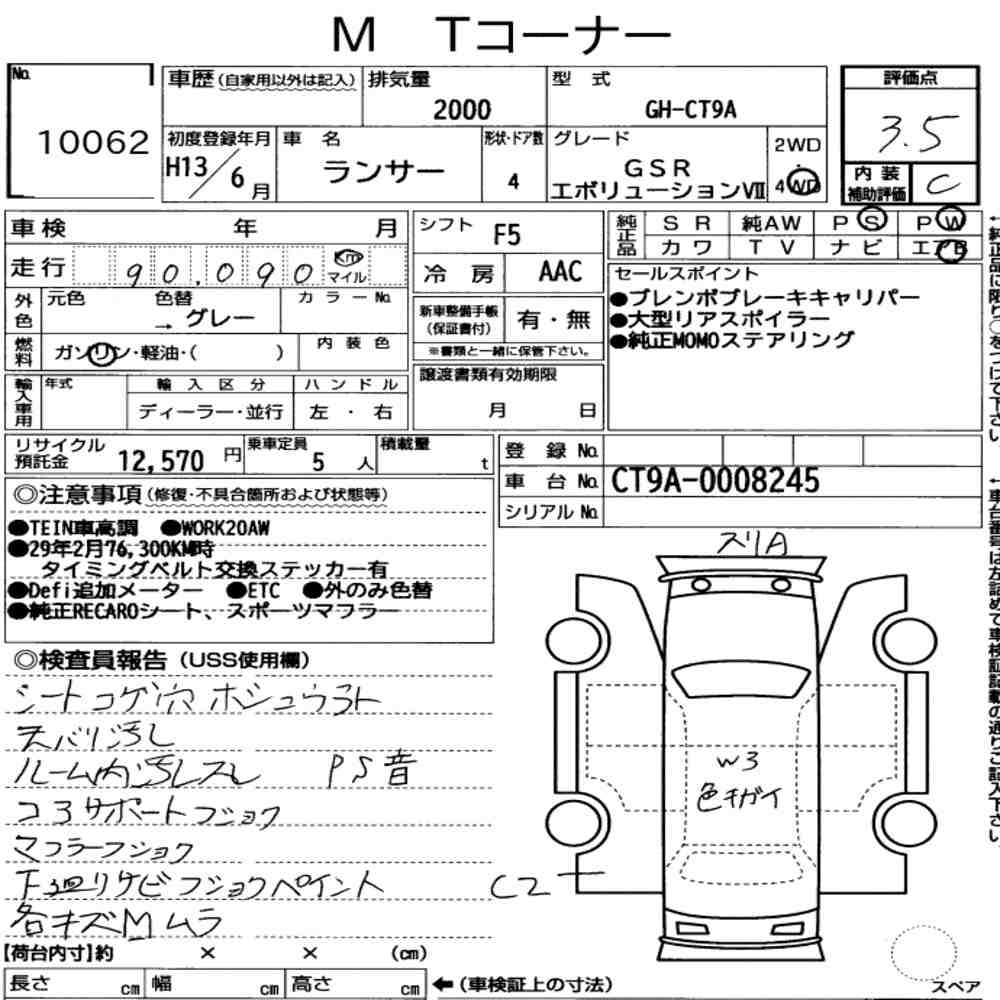 M Tコーナー
No.
10062
車歴(自家用以外は記入)
排気量
2000
型 式
GH-CT9A
評価点
3.5
初度登録年月
H13/6月
車 名
ランサー
形状・ドア数
4
グレード
GSR
エボリューションⅦ
2WD
・
4WD
内装
補助評価
C
車検 年 月
シフト
F5
純正品
SR 純AW PS PW
カワ TV ナビ エアB
走行
90,090
Km
マイル
冷房
AAC
セールスポイント
●ブレンボブレーキキャリパー
●大型リアスポイラー
●純正MOMOステアリング
外色
元色 色替
→ グレー
カラーNo.
新車整備手帳
(保証書付)
有・無
※書類と一緒に保管下さい。
燃料
ガソリン・軽油・( )
内装色
輸入車用
年式
輸入区分
ディーラー・並行
ハンドル
左・右
譲渡書類有効期限
月 日
リサイクル
預託金
12,570円
乗車定員
5人
積載量
t
登録No.
車台No.
CT9A-0008245
シリアルNo.
◎注意事項(修復・不具合箇所および状態等)
●TEIN車高調 ●WORK20AW
●29年2月76,300KM時
タイミングベルト交換ステッカー有
●Defi追加メーター ●ETC ●外のみ色替
●純正RECAROシート、スポーツマフラー
◎検査員報告(USS使用欄)
シートコゲ穴 ホシュウラト
天バリ汚し
ルーム内汚レスレ PS音
コアサポートフショク
マフラーフショク
下廻リサビフショクペイント
各キズMムラ
【荷台内寸】約 × × (cm)
長さ cm 幅 cm 高さ cm
←(車検証上の寸法)
ズリA
W3
色チガイ
C2
スペア
←純正品に限り○をつけて下さい。
←車台番号は左詰めで車検証記載の通りご記入下さい。